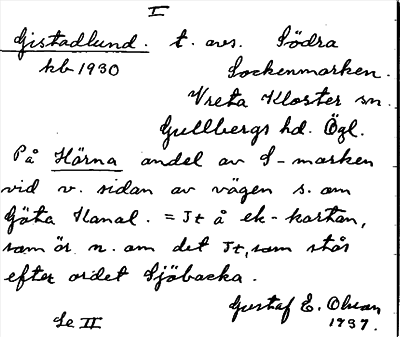 I
Gistadlund. t. avs. Södra
kb 1930 Sockenmarken.
Vreta Kloster sn.
Gullbergs hd. Ögl.
På Härna andel av S-marken
vid v. sidan av vägen s. om
Göta Kanal. = Jt å ek-kartan,
som är n. om det Jt, som står
efter ordet Sjöbacka.
Gustaf E. Olsson
Se II 1937.